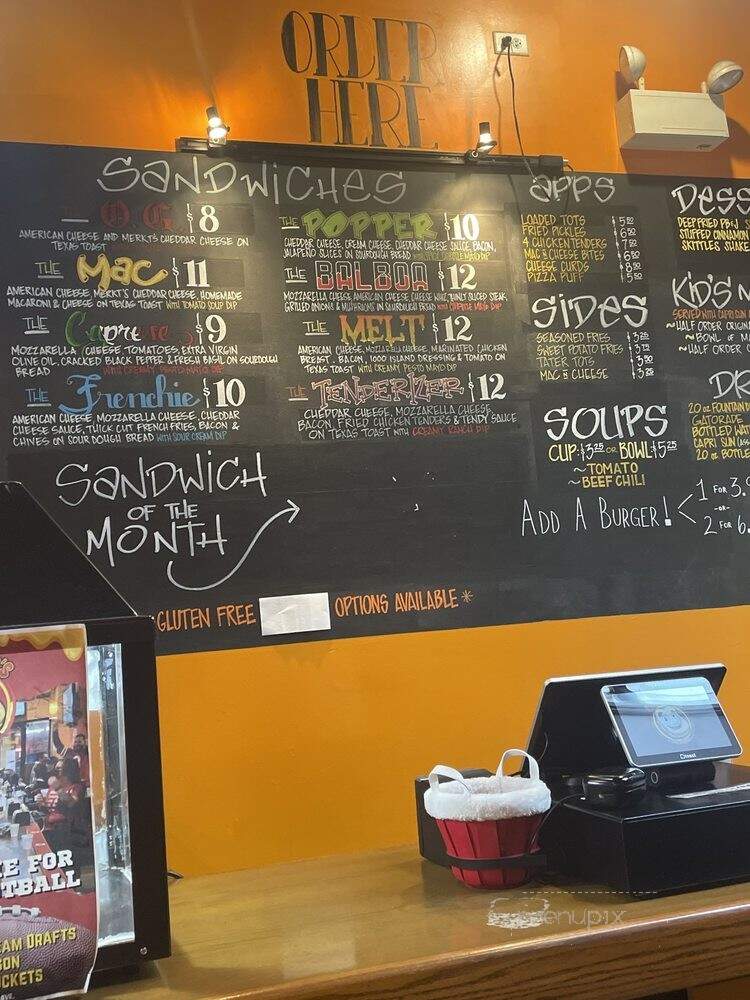 ORDER
HERE
SANDWICHES
O.G. $8
AMERICAN CHEESE AND MERKT'S CHEDDAR CHEESE ON
TEXAS TOAST
THE MAC $11
AMERICAN CHEESE, MERKT'S CHEDDAR CHEESE, HOMEMADE
MACARONI & CHEESE ON TEXAS TOAST WITH TOMATO SOUP DIP
THE Caprese $9
MOZZARELLA CHEESE, TOMATOES, EXTRA VIRGIN
OLIVE OIL, CRACKED BLACK PEPPER & FRESH BASIL ON SOURDOUGH
BREAD WITH CREAMY PESTO MAYO DIP
THE Frenchie $10
AMERICAN CHEESE, MOZZARELLA CHEESE, CHEDDAR
CHEESE SAUCE, THICK CUT FRENCH FRIES, BACON &
CHIVES ON SOURDOUGH BREAD WITH SOUR CREAM DIP
THE POPPER $10
CHEDDAR CHEESE, CREAM CHEESE, CHEDDAR CHEESE SAUCE, BACON,
JALAPEÑO SLICES ON SOURDOUGH BREAD
THE BALBOA $12
MOZZARELLA CHEESE, AMERICAN CHEESE, CHEESE WHIZ, THINLY SLICED STEAK,
GRILLED ONIONS & MUSHROOMS ON SOURDOUGH BREAD WITH MAYO DIP
THE MELT $12
AMERICAN CHEESE, MOZZARELLA CHEESE, MARINATED CHICKEN
BREAST, BACON, 1000 ISLAND DRESSING & TOMATO ON
TEXAS TOAST WITH CREAMY PESTO MAYO DIP
THE TENDERIZER $12
CHEDDAR CHEESE, MOZZARELLA CHEESE,
BACON, FRIED CHICKEN TENDERS & TENDY SAUCE
ON TEXAS TOAST WITH CREAMY RANCH DIP
APPS
LOADED TOTS
FRIED PICKLES
4 CHICKEN TENDERS
MAC & CHEESE BITES
CHEESE CURDS
PIZZA PUFF
SIDES
SEASONED FRIES
SWEET POTATO FRIES
TATER TOTS
MAC & CHEESE
SOUPS
CUP: $3.25 OR BOWL: $5.25
~TOMATO
~BEEF CHILI
ADD A BURGER!
1 FOR 3.
-OR-
2 FOR 6.
DESS
DEEP FRIED PB & J
STUFFED CINNAMON
SKITTLES SHAKE
KID'S M
SERVED WITH CAPRI SUN
~HALF ORDER ORIGIN
~BOWL OF M
~HALF ORDER C
DR
20 OZ FOUNTAIN
GATORADE
BOTTLED WAT
CAPRI SUN (ASS
20 OZ BOTTLE
SANDWICH
OF THE
MONTH
GLUTEN FREE OPTIONS AVAILABLE *
E FOR
TBALL
EAM DRAFTS
SON
CKETS
menupix